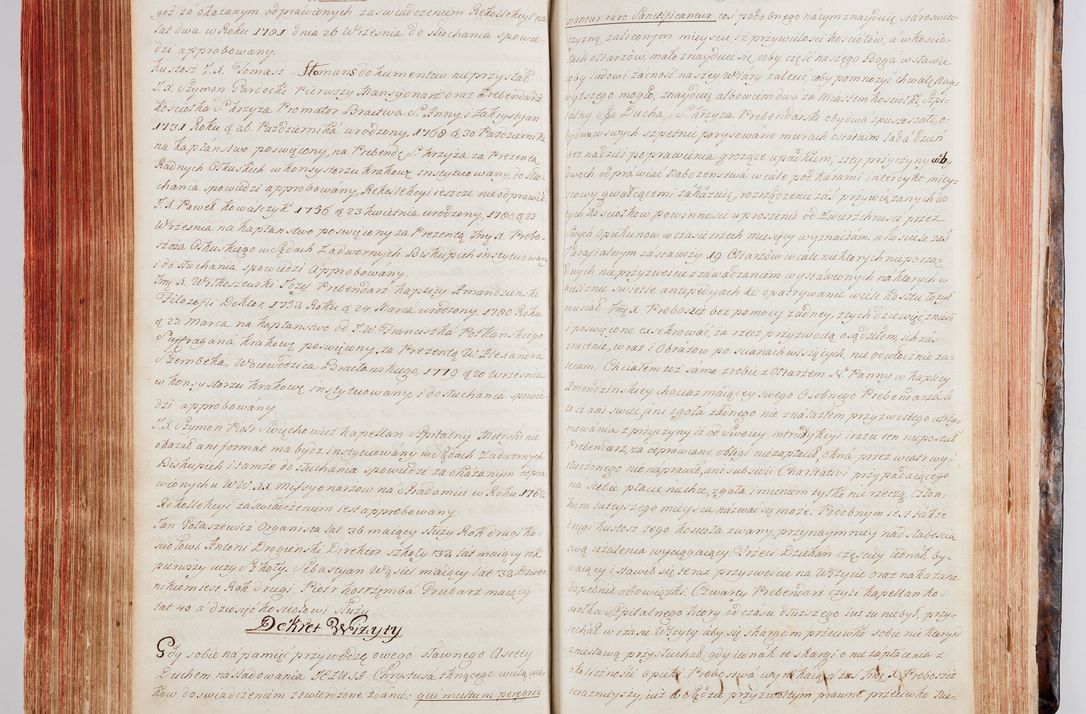 goż za okazanym odprawionych zaswiadczeniem Rekollekcyi na
lat dwa w Roku 1781 dnia 26 Wrzesnia do słuchania spowie-
dzi approbowany.
Kustosz J.X. Tomasz Homans dokumentow nie przysłał
J.X. Szymon Pardocki Pierwszy Mansyonarz oraz Prebendarz
Kosciołka S. Krzyża Promotor Bractwa S. Anny i Zakrystyan
1731 Roku d. 26 Pazdziernika urodzony, 1768 d 30 Pazdziernika
na kapłanstwo poswięcony, na Prebendę S. Krzyża za Prezentą
Radnych Olkuskich w konsystorzu krakow. instytuowany, do słu-
chania spowiedzi approbowany, Rekollekcyi ieszcze nie odprawił
J.X. Paweł Kowalczyk 1756 d 23 kwietnia urodzony, 1780 d 23
Wrzesnia na kapłanstwo poswięcony za Prezentą Jmę X. Probo-
szcza Olkuskiego w Sądach Zadwornych Biskupich instytuowany
i do słuchania spowiedzi Approbowany.
Jmę X. Wytkoszewski Jozef Prebendarz kaplicy Amandzinski
Filozofii Doktor, 1753 Roku d 24 Marca urodzony, 1780 Roku
d 25 Marca na kapłanstwo od J.W. Franciszka Potkanskiego
Suffragana krakow. poswięcony, za Prezentą W. Alexandra
Szembeka, Woiewodzica Bracławskiego, 1779 d 20 Wrzesnia
w konsystorzu krakow. instytuowany i do słuchania spowie-
dzi approbowany
J.X. Szymon Piotr Swięchowicz kapellan Szpitalny Metryki nie
okazał ani format ma bydź instytuowany w Sądach Zadwornych
Biskupich i tamże do słuchania spowiedzi za okazanym odpra-
wionych u WW. XX. Missyonarzow na Stradomiu w Roku 1782
Rekollekcyi zaswiadczeniem iest approbowany.
Jan Gołaszewicz Organista lat 36 maiący służy Rok drugi ko-
sciołowi. Antoni Drogienski Direktor szkoły 38 lat maiący rok
pierwszy uczy szkoły. Sebastyan Wąsik maiący lat 38 Dzwon-
nikiem iest Rok drugi. Piotr Kostrzmba Grubarz maiący
lat 40 a dziesięć kosciołowi służy
Dekret Wizyty
Gdy sobie na pamięć przywodzę owego sławnego Ascety
Duchem nasladowania JEZUSA Chrystusa tchnącego wielą wie-
kow doswiadczeniem stwierdzone zdanie: qui multum peregri-
nantur raro Sanctificantur, cos podobnego na tym znayduię staroswie-
czyzną zaliczonym mieyscu iż przywileiow kosciołow, a w koscio-
łach Ołtarzow, małe znayduie się, coby czesć naszego Boga w Stawie
oby Ludowi zacnosć naszey Wiary zalecić, coby pomnożyć chwałę Nay-
wyższego mogło, znayduią albowiem dwa za Miastem kosciołki, Szpi-
talny S-go Ducha, i S. Krzyża Prebendarski obydwa zpustoszałe, o-
bydwa w swych szpetnie porysowane murach ostatnim lada dzień
bez nadziei poprawienia grożące upadkiem; z tey przyczyny w o-
dwoch odprawiac Nabozenstwa wcale pod karami interdykt miey-
scowy gwałcącemi zakazuię, rozrządzenie zaś przywiązanych do
tych kosciołkow powinnosci uproszenie od zwierzchnosci przez
swych opiekunow w czasie trzech miesięcy wyznaczam, w kosciele zas
Parafialnym zastawszy 19 Ołtarzow wcale niektorych nieporzą-
dnych nieprzyzwoicie z zawadzaniem wystawionych na ktorych w
bieliznie swietle antepedyach &c opatrywanie wiele kosztu łożyć
musiał Jmę X. Proboszcz bez pomocy żadney, z tych dziewięć znieść
i poswięcone exsekrować za rzecz przyzwoitą osądziłem ich zas
zniesienie, wraz i Obrazow po scianach wiszących, nieodwłocznie za-
lecam. Chciałem toż samo zrobić z Ołtarzem N. Panny w kaplicy
Amendzinskiey chociaz maiącey swego Osobnego Prebendarza &
to iż ani swiec, ani zgoła żadnego nie znalazłem przyzwoitego utrzy-
mowania z przyczyny iż od swoiey introdukcyi i razu ten nie postał
Prebendarz, za odprawianie obligi niezapłacił, okna przez wiatr wy-
tłuczonego nie naprawił, ani subsidii Charitativi przypadaiącego
na siebie płacić niechce, zgoła imieniem tylko nie rzeczą Człon-
kiem tuteyszego mieysca nazwać się może. Podobnym iest także
drugi kustosz tego kosciola zwany, przynaymniey nad słabością
swą użalenia wyciągaiący. Trzeci Dziekan częsciey iednak by-
waiący i stawił się teraz przyzwoicie na Wizycie oraz nakazane
dopełnił obowiązki. Czwarty Prebendarz czyli kapellan ko-
sciołka Szpitalnego ktory od czasu dłuższego iuż tu niebył, przy-
iechał w czasie Wizyty aby się skargom przeciwko sobie nie ktorym
zniesławą przysłuchał, gdy iednak te skargi o niezapłacenia z
okoliczności opieki Probostwa wynikaią a zas Jmę X. Proboszcz
terazniejszy, iuż w Sądzie przyzwoitym prawnie przeciwko nie-